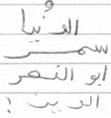 الدُنيا
سمر
ابو النصر
الدين :